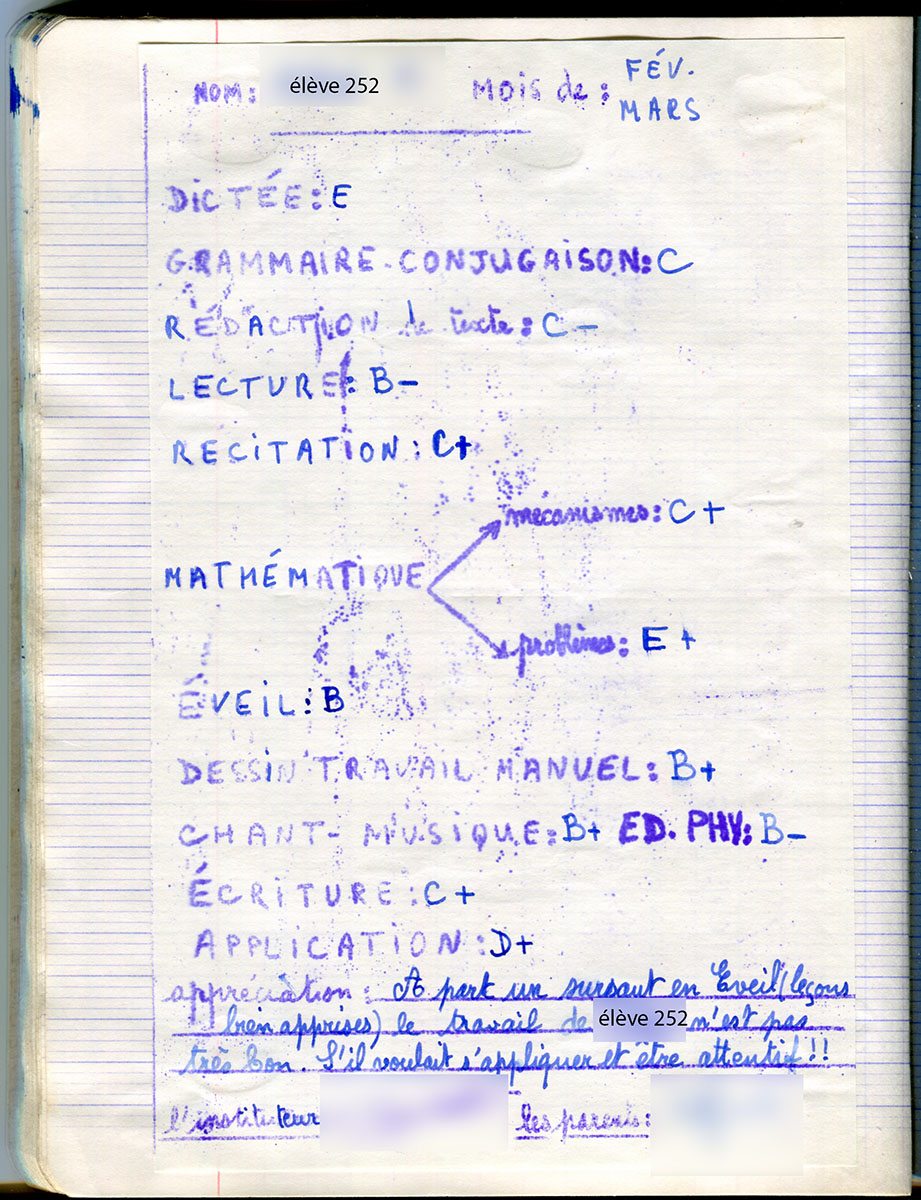 NOM: élève 252 Mois de: FÉV. MARS
DICTÉE: E
GRAMMAIRE-CONJUGAISON: C
RÉDACTION de texte: C -
LECTURE: B-
RECITATION: C+
mécanismes: C +
MATHÉMATIQUE
problèmes: E +
ÉVEIL: B
DESSIN TRAVAIL MANUEL: B+
CHANT- MUSIQUE: B+ ED. PHY: B-
ÉCRITURE: C +
APPLICATION: D+
appréciation: A part un sursaut en Eveil (leçons
bien apprises) le travail de élève 252 n'est pas
très bon. S'il voulait s'appliquer et être attentif!!
l'instituteur les parents: